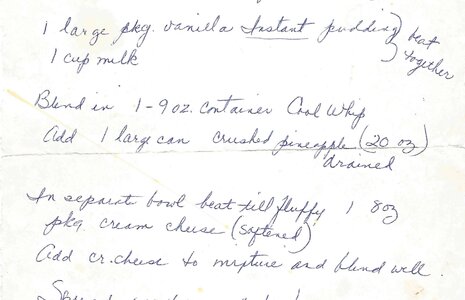 1 large pkg. vanilla Instant pudding } beat together
1 cup milk
Blend in 1-9 oz. container Cool Whip
Add 1 large can crushed pineapple (20 oz)
drained
In separate bowl beat till fluffy 1 8oz
pkg cream cheese (softened)
Add cr. cheese to mixture and blend well.